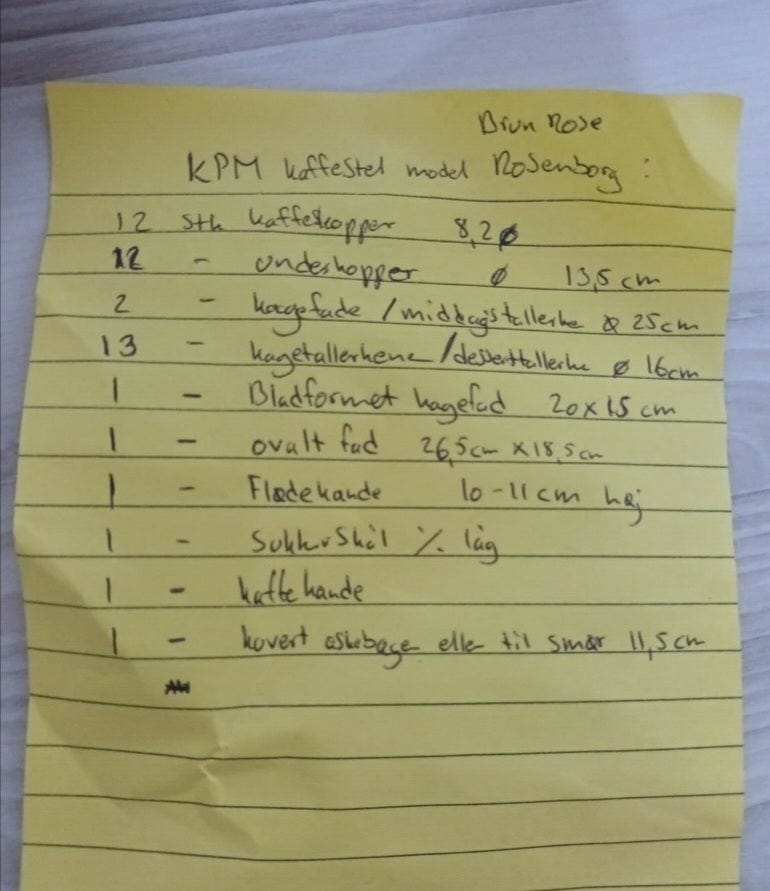 Brun Rose
KPM kaffestel model Rosenborg :
12 stk kaffekopper 8,2 ø
12 - underkopper ø 13,5 cm
2 - kagefade / middagstallerke ø 25cm
13 - kagetallerkene / desserttallerke ø 16cm
1 - Bladformet kagefad 20 x 15 cm
1 - ovalt fad 26,5cm x 18,5cm
1 - Flødekande 10-11 cm høj
1 - Sukkerskål % låg
1 - kaffekande
1 - kuvert askebæger eller til smør 11,5 cm